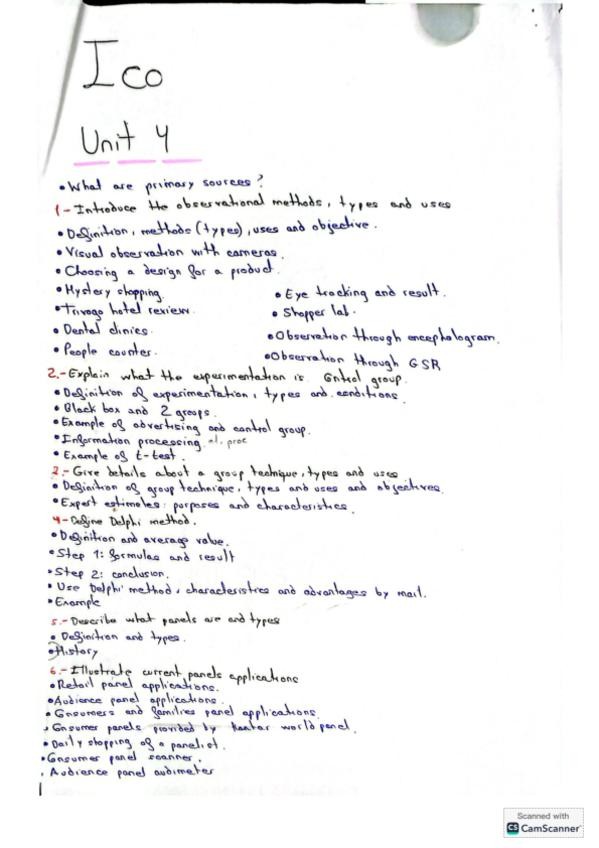 Ico
Unit 4
• What are primary sources?
1- Introduce the observational methods, types and uses
• Definition, methods (types), uses and objective.
• Visual observation with cameras.
• Choosing a design for a product.
• Mystery shopping.
• Eye tracking and result.
• Trivago hotel review.
• Shopper lab.
• Dental clinics.
• Observation through encephalogram.
• People counter.
• Observation through GSR
2.- Explain what the experimentation is. Control group.
• Definition of experimentation, types and conditions.
• Black box and 2 groups.
• Example of advertising and control group.
• Information processing. proc
• Example of t-test.
3.- Give details about a group technique, types and uses
• Definition of group technique, types and uses and objectives.
• Expert estimates: purposes and characteristics.
4- Define Delphi method.
• Definition and average value.
• Step 1: formulas and result
• Step 2: conclusion.
• Use Delphi method, characteristics and advantages by mail.
• Example
5.- Describe what panels are and types
• Definition and types.
• History
6.- Illustrate current panels applications
• Retail panel applications.
• Audience panel applications.
• Consumers and families panel applications.
• Consumer panels provided by Kantar world panel.
• Daily shopping of a panelist.
• Consumer panel scanner.
• Audience panel audimeter
Scanned with
CS CamScanner